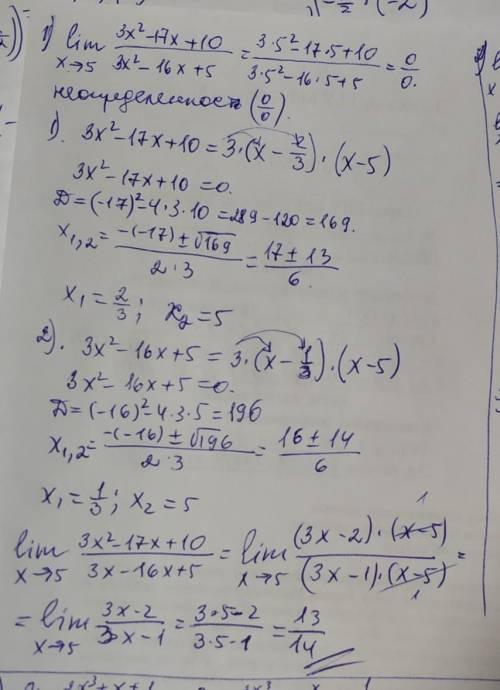 1) lim x→5 (3x²-17x+10)/(3x²-16x+5) = (3·5²-17·5+10)/(3·5²-16·5+5) = 0/0.
неопределенность (0/0).
1). 3x²-17x+10 = 3·(x-2/3)·(x-5)
3x²-17x+10=0.
D=(-17)²-4·3·10=289-120=169.
x₁,₂=(-(-17)±√169)/(2·3)=(17±13)/6.
x₁=2/3; x₂=5
2). 3x²-16x+5=3·(x-1/3)·(x-5)
3x²-16x+5=0.
D=(-16)²-4·3·5=196
x₁,₂=(-(-16)±√196)/(2·3)=(16±14)/6
x₁=1/3; x₂=5
lim x→5 (3x²-17x+10)/(3x-16x+5) = lim x→5 ((3x-2)·(x-5))/((3x-1)·(x-5)) =
= lim x→5 (3x-2)/(3x-1) = (3·5-2)/(3·5-1) = 13/14